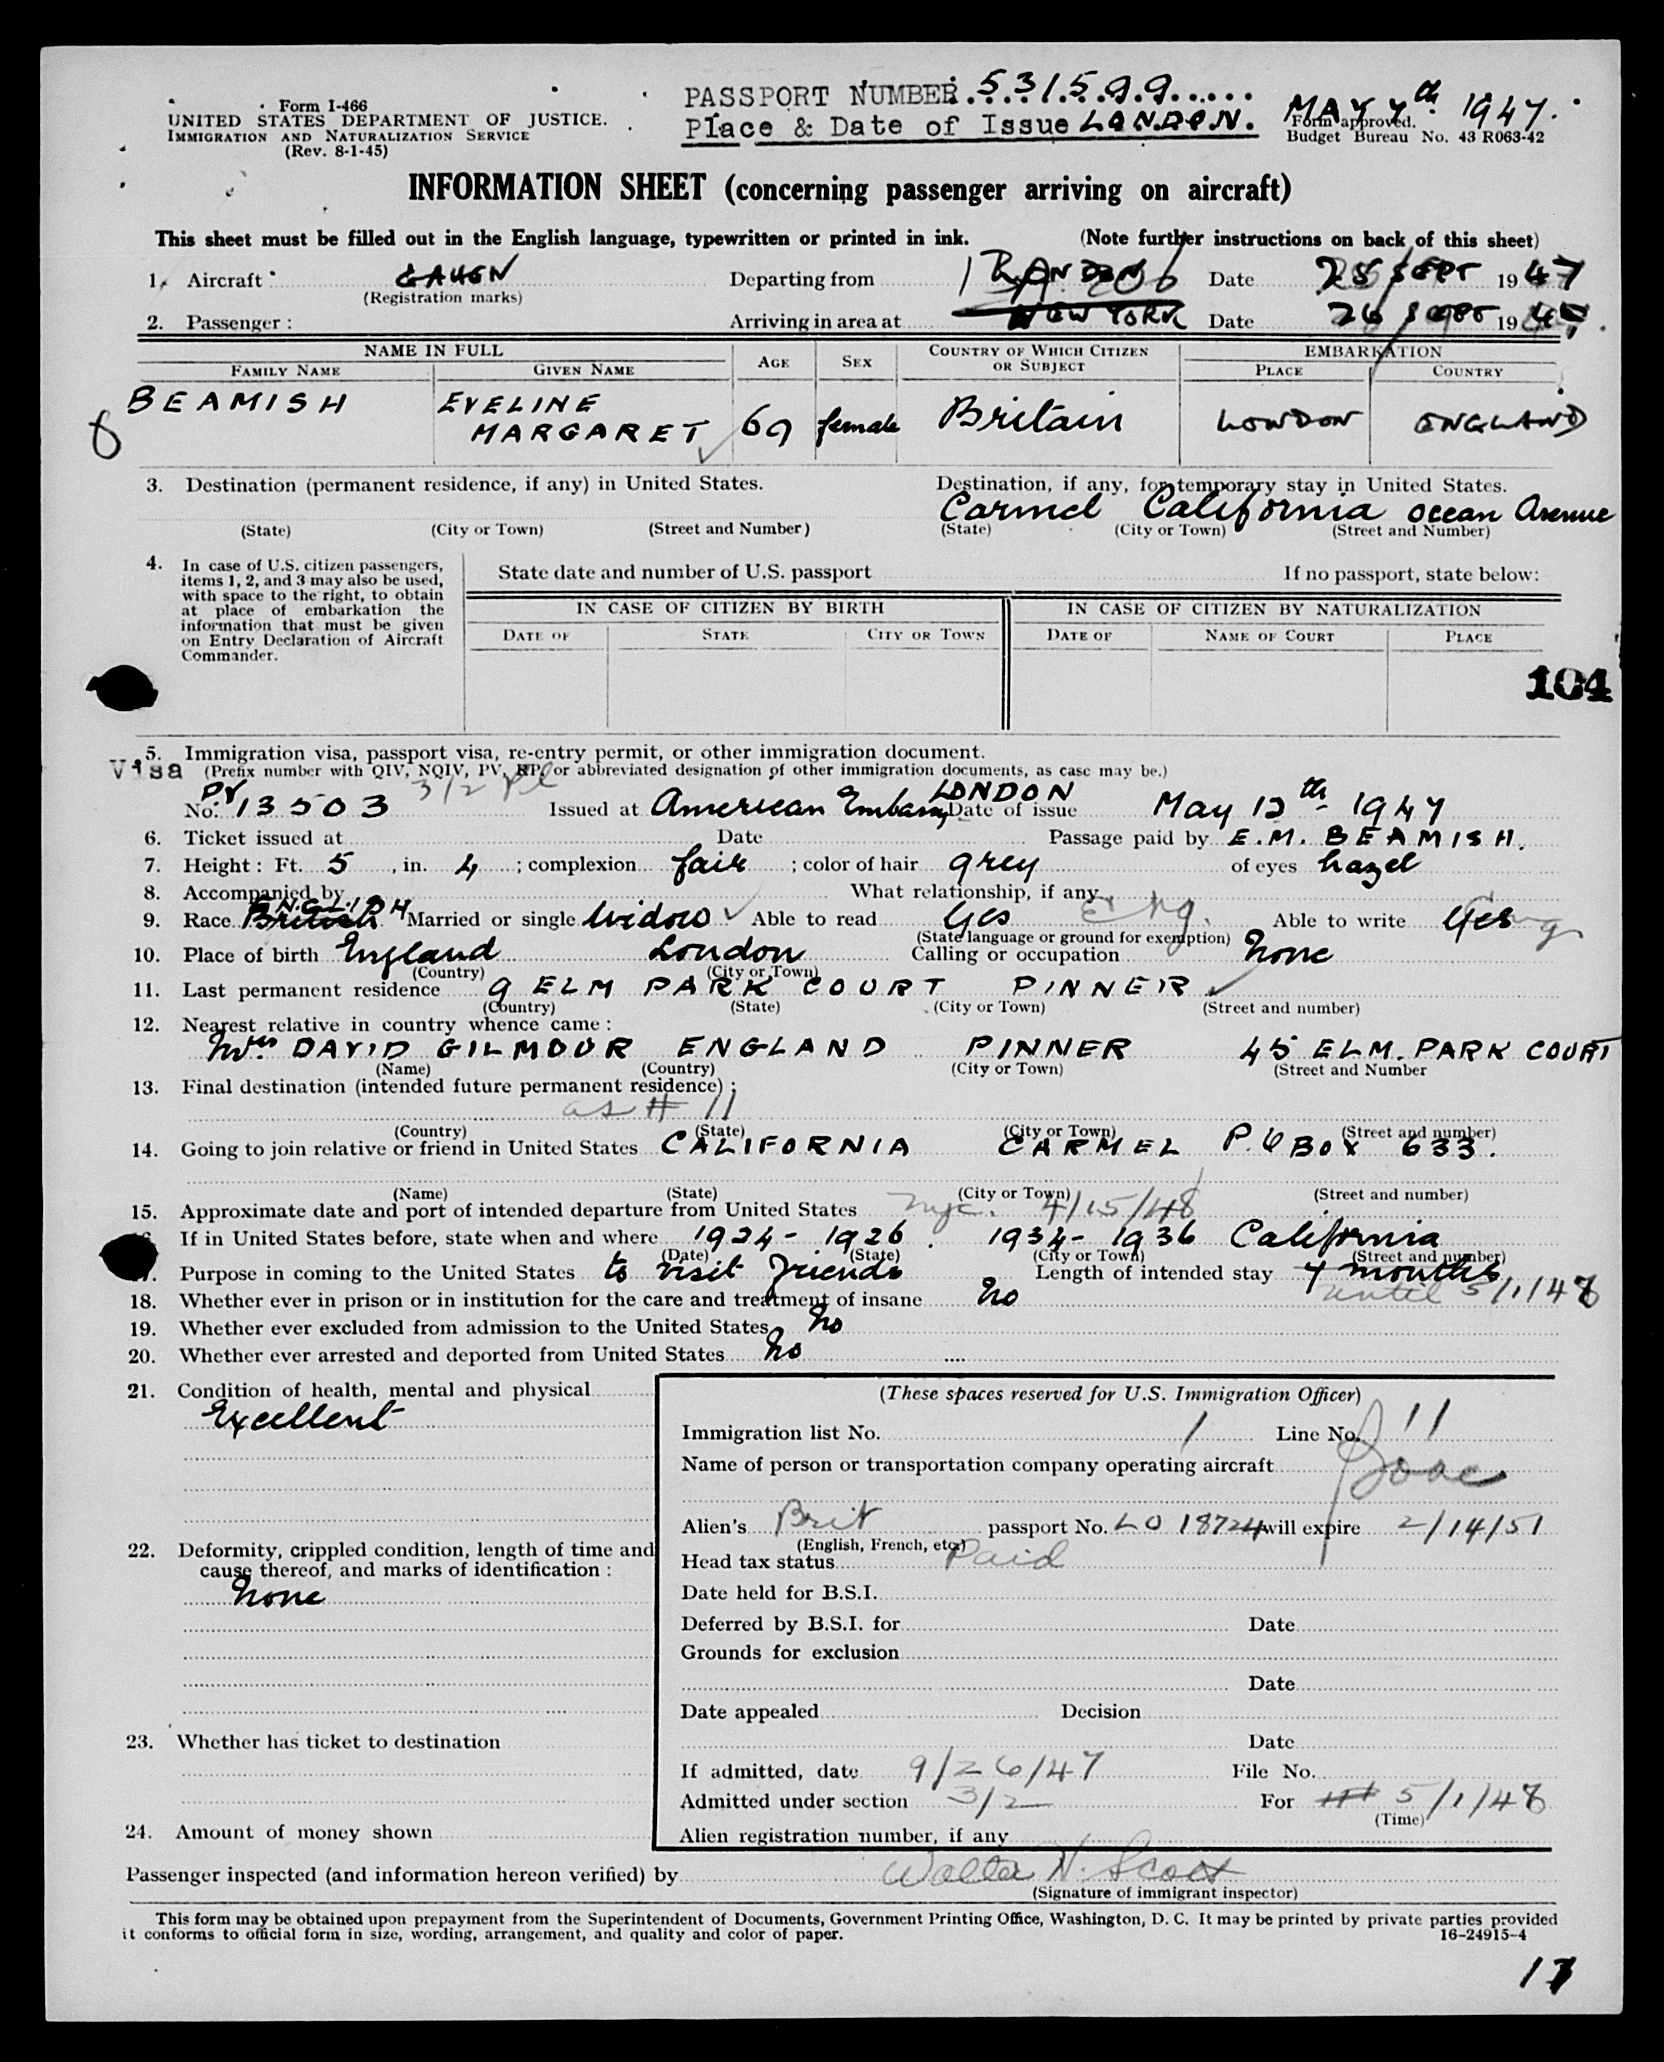 Form I-466
UNITED STATES DEPARTMENT OF JUSTICE.
IMMIGRATION AND NATURALIZATION SERVICE
(Rev. 8-1-45)
PASSPORT NUMBER 531599
Place & Date of Issue LONDON. MAY 7th 1947.
Form approved.
Budget Bureau No. 43 R063-42
INFORMATION SHEET (concerning passenger arriving on aircraft)
This sheet must be filled out in the English language, typewritten or printed in ink. (Note further instructions on back of this sheet)
1. Aircraft GAHEN Departing from LONDON Date 25 SEPT 1947
(Registration marks)
2. Passenger : Arriving in area at NEW YORK Date 26 SEPT 1947
NAME IN FULL AGE SEX COUNTRY OF WHICH CITIZEN OR SUBJECT EMBARKATION
FAMILY NAME GIVEN NAME PLACE COUNTRY
BEAMISH EVELINE MARGARET 69 female Britain LONDON ENGLAND
3. Destination (permanent residence, if any) in United States. Destination, if any, for temporary stay in United States.
Carmel California ocean Avenue
(State) (City or Town) (Street and Number) (State) (City or Town) (Street and Number)
4. In case of U.S. citizen passengers, items 1, 2, and 3 may also be used, with space to the right, to obtain at place of embarkation the information that must be given on Entry Declaration of Aircraft Commander.
State date and number of U.S. passport If no passport, state below:
IN CASE OF CITIZEN BY BIRTH IN CASE OF CITIZEN BY NATURALIZATION
DATE OF STATE CITY OR TOWN DATE OF NAME OF COURT PLACE
104
5. Immigration visa, passport visa, re-entry permit, or other immigration document.
Visa (Prefix number with QIV, NQIV, PV, RP, or abbreviated designation of other immigration documents, as case may be.)
3/2
No. PV 13503 Issued at American Embassy LONDON Date of issue May 12th 1947
6. Ticket issued at Date Passage paid by E.M. BEAMISH.
7. Height : Ft. 5, in. 4 ; complexion fair ; color of hair grey of eyes hazel
8. Accompanied by What relationship, if any
9. Race British ENGLISH Married or single Widow Able to read Yes Eng. Able to write Yes Eng
(State language or ground for exemption)
10. Place of birth England London Calling or occupation None
(Country) (City or Town)
11. Last permanent residence 9 ELM PARK COURT PINNER
(Country) (State) (City or Town) (Street and number)
12. Nearest relative in country whence came :
Mrs DAVID GILMOUR ENGLAND PINNER 45 ELM. PARK COURT
(Name) (Country) (City or Town) (Street and Number
13. Final destination (intended future permanent residence) :
as # 11
(Country) (State) (City or Town) (Street and number)
14. Going to join relative or friend in United States CALIFORNIA CARMEL P.O BOX 633.
(Name) (State) (City or Town) (Street and number)
15. Approximate date and port of intended departure from United States nyc. 4/15/48
If in United States before, state when and where 1924 - 1926. 1934 - 1936 California
(Date) (State) (City or Town) (Street and number)
Purpose in coming to the United States to visit friends Length of intended stay 7 months
until 5/1/48
18. Whether ever in prison or in institution for the care and treatment of insane No
19. Whether ever excluded from admission to the United States No
20. Whether ever arrested and deported from United States No
21. Condition of health, mental and physical
Excellent
22. Deformity, crippled condition, length of time and
cause thereof, and marks of identification :
None
23. Whether has ticket to destination
24. Amount of money shown
(These spaces reserved for U.S. Immigration Officer)
Immigration list No. 1 Line No. 11
Name of person or transportation company operating aircraft Boac
Alien's Brit passport No. LO 18724 will expire 2/14/51
(English, French, etc.)
Head tax status Paid
Date held for B.S.I.
Deferred by B.S.I. for Date
Grounds for exclusion
Date
Date appealed Decision
Date
If admitted, date 9/26/47 File No.
Admitted under section 3/2 For 5/1/48
(Time)
Alien registration number, if any
Passenger inspected (and information hereon verified) by Walter N. Scott
(Signature of immigrant inspector)
This form may be obtained upon prepayment from the Superintendent of Documents, Government Printing Office, Washington, D. C. It may be printed by private parties provided
it conforms to official form in size, wording, arrangement, and quality and color of paper. 16-24915-4